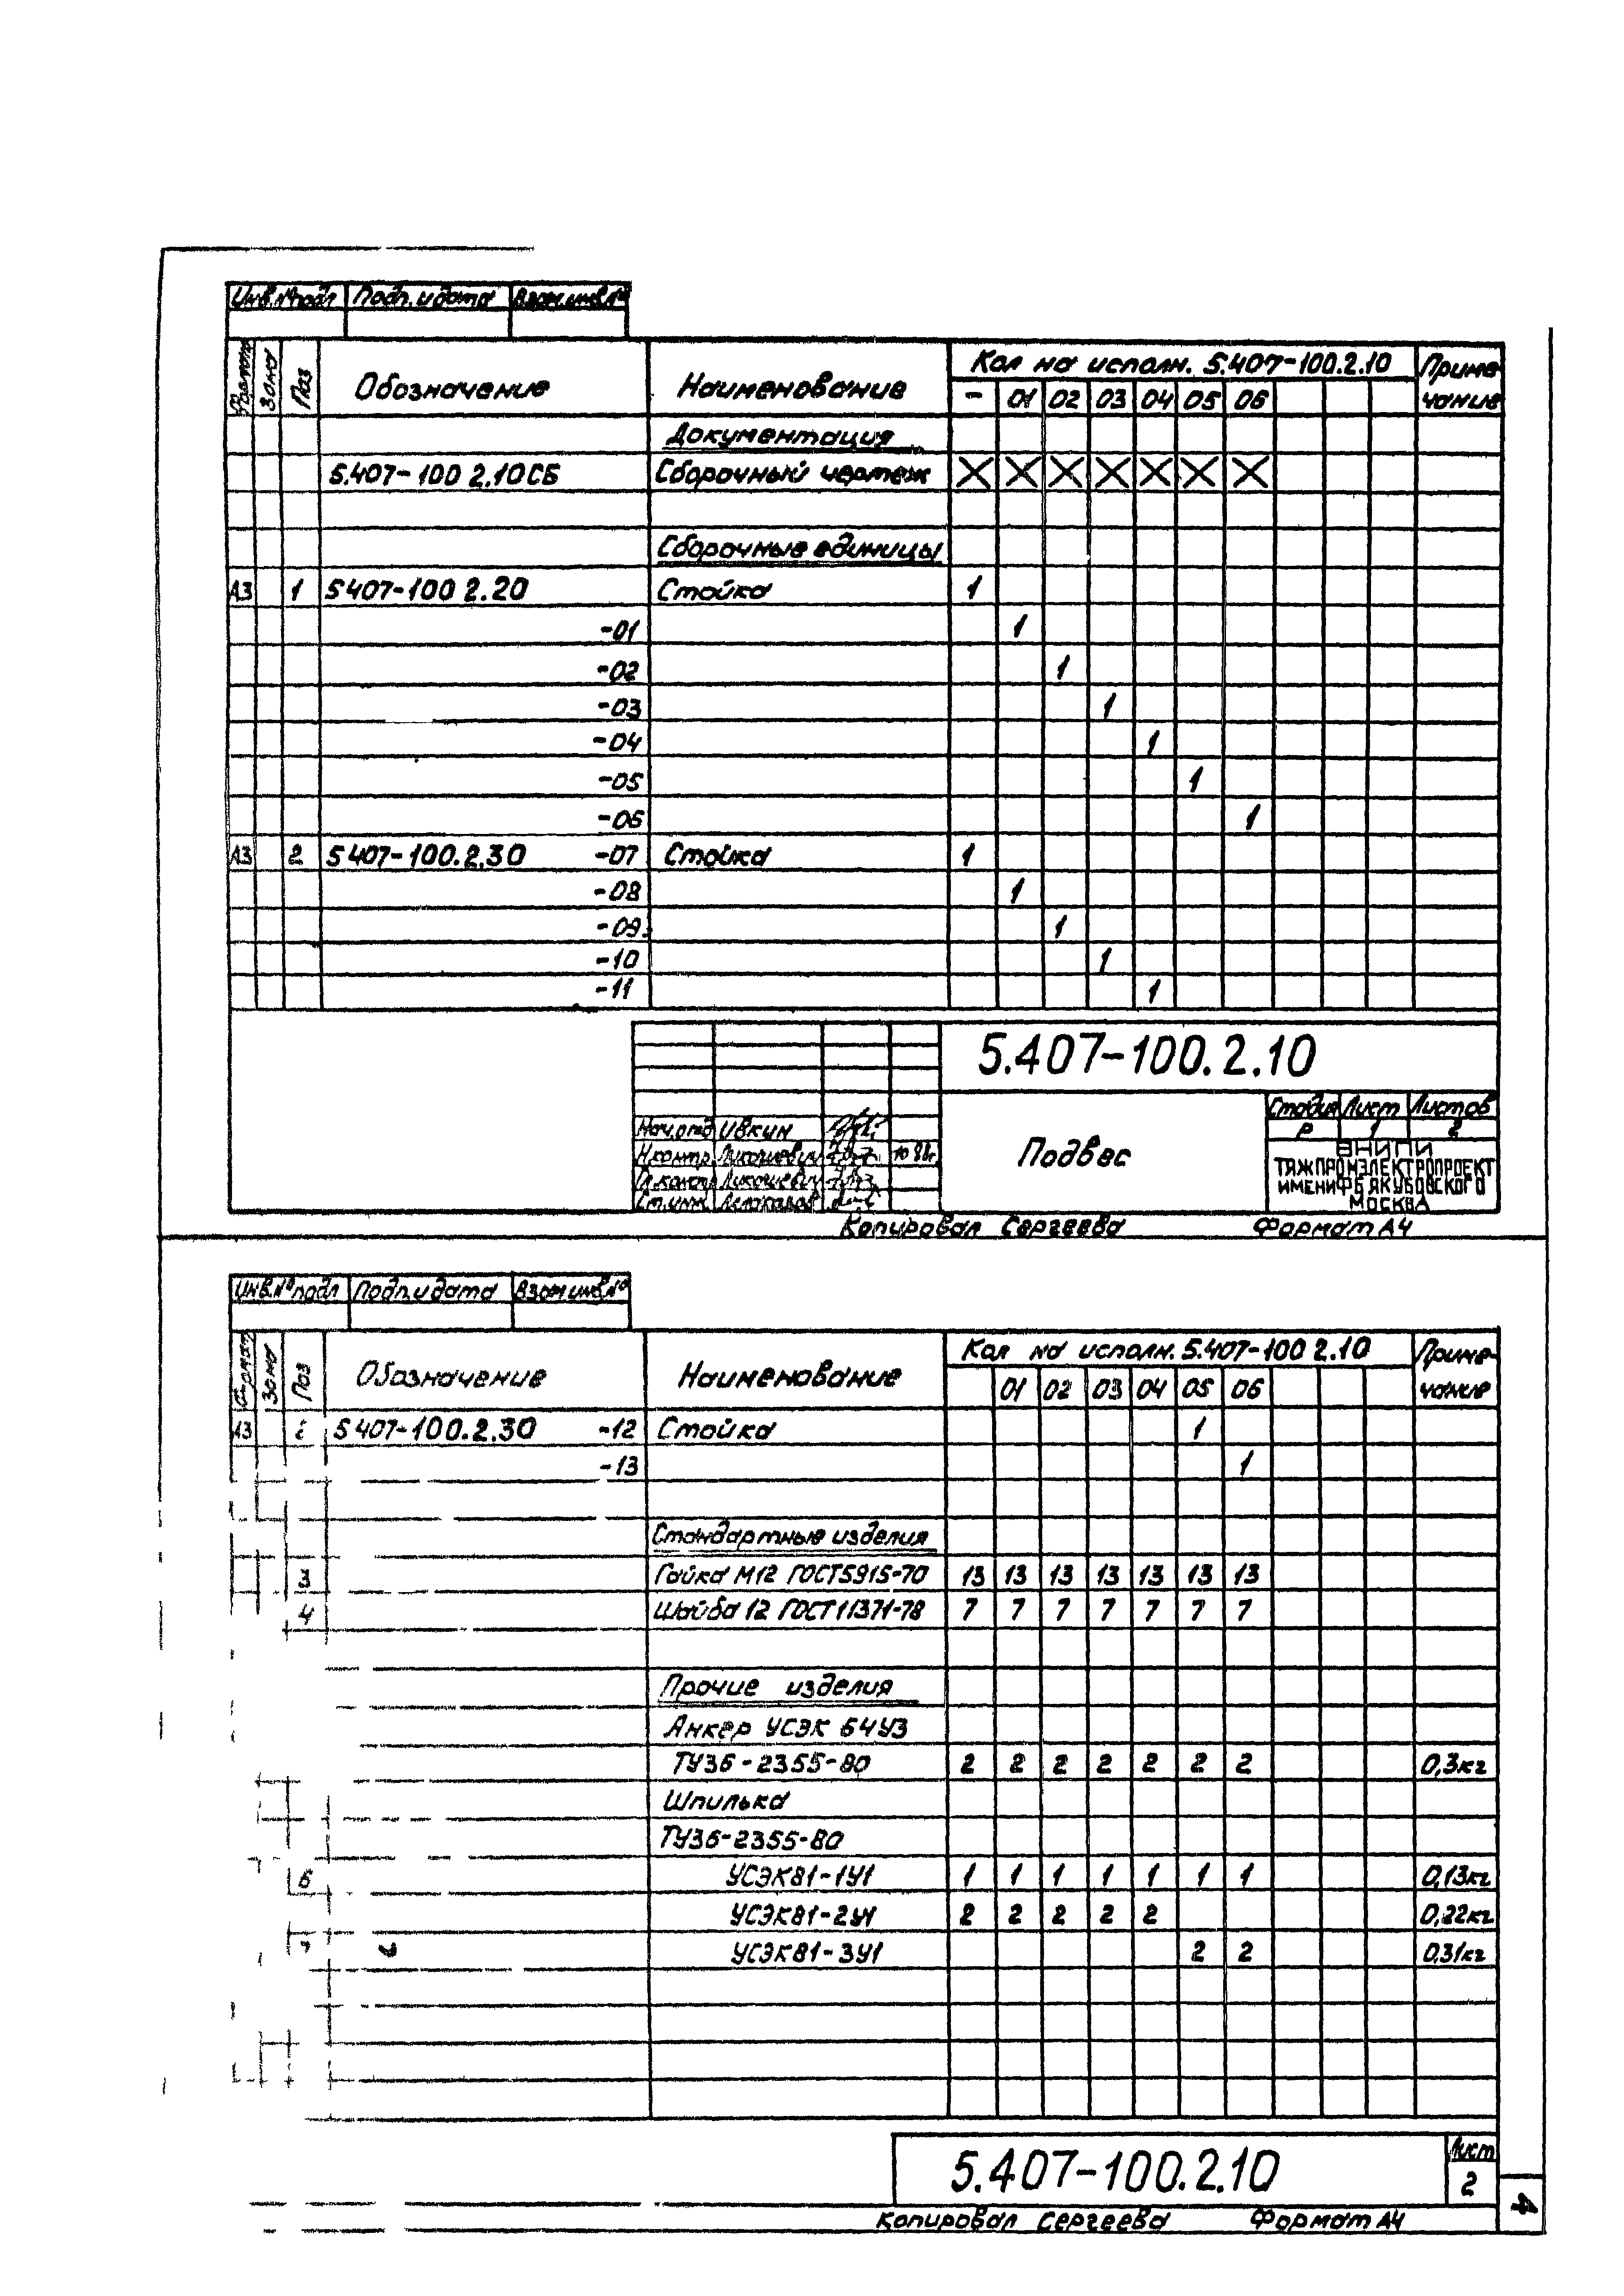 Инв.№подл Подп.и дата Взам.инв.№
Формат Зона Поз Обозначение Наименование Кол на исполн. 5.407-100.2.10 Приме
- 01 02 03 04 05 06 чание
Документация
5.407-100 2.10СБ Сборочный чертеж X X X X X X X
Сборочные единицы
А3 1 5 407-100 2.20 Стойка 1
-01 1
-02 1
-03 1
-04 1
-05 1
-06 1
А3 2 5 407-100.2.30 -07 Стойка 1
-08 1
-09 1
-10 1
-11 1
5.407-100.2.10
Стадия Лист Листов
Р 1 2
Нач.отд Ивкин
Н.контр. 10 88г.
Подвес
ВНИПИ
ТЯЖПРОМЭЛЕКТРОПРОЕКТ
ИМЕНИ Ф Б ЯКУБОВСКОГО
МОСКВА
Копировал Сергеева Формат А4
Инв.№подл Подп.и дата Взам.инв.№
Формат Зона Поз Обозначение Наименование Кол на исполн. 5.407-100 2.10 Приме-
01 02 03 04 05 06 чание
А3 2 5 407-100.2.30 -12 Стойка 1
-13 1
Стандартные изделия
3 Гайка М12 ГОСТ5915-70 13 13 13 13 13 13 13
4 Шайба 12 ГОСТ11371-78 7 7 7 7 7 7 7
Прочие изделия
Анкер УСЭК 64У3
ТУ36-2355-80 2 2 2 2 2 2 2 0,3кг
Шпилька
ТУ36-2355-80
6 УСЭК81-1У1 1 1 1 1 1 1 1 0,13кг
УСЭК81-2У1 2 2 2 2 2 0,22кг
УСЭК81-3У1 2 2 0,31кг
5.407-100.2.10 Лист
2
4
Копировал Сергеева Формат А4